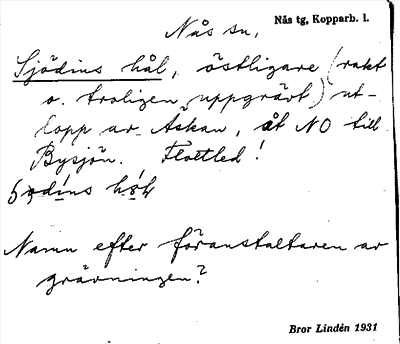 Nås sn,
Nås tg, Kopparb. l.
Sjödins hål, östligare (rakt
o. troligen uppgrävt) ut-
lopp av Åskan, åt NO till
Bysjön. Flottled!
Namn efter föranstaltaren av
grävningen?
Bror Lindén 1931